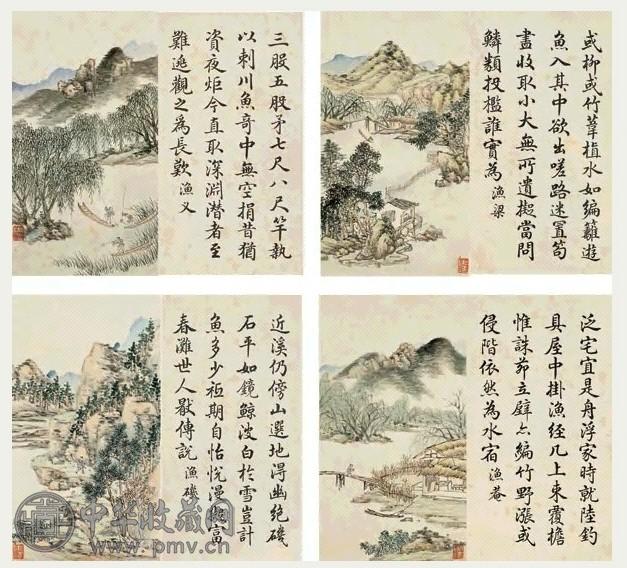 三股五股矛七尺八尺竿執
以刺川魚奇中無空捐昔猶
資夜炬今直取深淵潛者至
難觀之為長歎 漁叉
或柳或竹葦植水如編籬遊
魚入其中欲出嗟路迷置笱
盡收取小大無所遺擬當問
鱗類投檻誰實為 漁梁
近溪仍傍山選地得幽絕磯
石平如鏡鯨波白於雪豈計
魚多少祗期自怡悅漫富
春灘世人猒傳說 漁磯
泛宅宜是舟浮家時就陸釣
具屋中掛漁經几上束覆檐
惟誅茆立壁亦編竹野漲或
侵階依然為水宿 漁菴
中华收藏网
www.pmv.cn